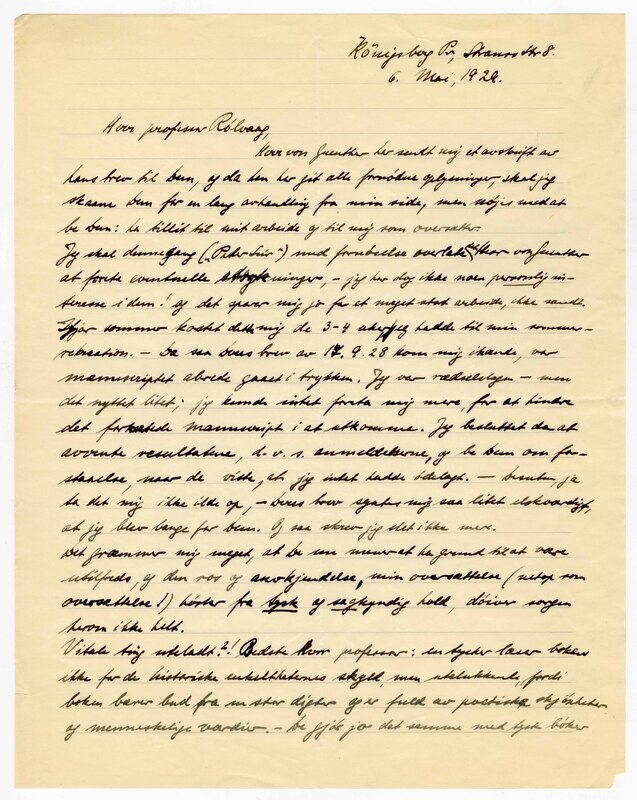 Königsberg Pr, Strauss Str 8.
6. Mai, 1929.
Herr professor Rölvaag,
Herr von Guenther har sendt mig et avskrift av
hans brev til Dem, og da han har git alle fornödne oplysninger, skal jeg
skaane Dem for en lang avhandling fra min side, men nöjes med at
be Dem: ha tillit til mit arbeide og til mig som oversætter.
Jeg skal denne gang („Peder Seier“) med fornöielse overlate Herr von Guenther
at foreta eventuelle strykninger, – jeg har dog ikke noen personlig in-
teresse i dem! og det sparer mig jo for et meget stort arbeide, ikke sandt.
Ifjor sommer kostet dette mig de 3-4 uker jeg hadde til min sommer-
rekreation. – Da saa Deres brev av 17. 9. 28 kom mig ihænde, var
manuscriptet alerede gaaet i trykken. Jeg var rædselslagen – men
det nyttet litet; jeg kunde intet foreta mig mere, for at hindre
det forkortede manuscript i at utkomme. Jeg besluttet da at
avvente resultatene, d. v. s. anmeldelserne, og be Dem om for-
staaelse, naar De viste, at jeg intet hadde ödelagt. – Desuten, ja
ta det mig ikke ilde op, – Deres brev syntes mig saa litet elskværdigt,
at jeg blev bange for Dem. Og saa skrev jeg slet ikke mere.
Det græmmer mig meget, at De nu mener at ha grund til at være
utilfreds, og den ros og anerkjendelse, min oversættelse (netop som
oversættelse!) höster fra tysk og sagkyndig hold, döiver sorgen
herom ikke helt.
Vitale ting uteladt?! Bedste herr professor: en tysker læser boken
ikke for de historiske enkeltheternes skyld, men utelukkende, fordi
boken bærer bud fra en stor digter og er fuld av poetiske skjönheter
og menneskelige værdier. – De gjör jo det samme med tyske böker